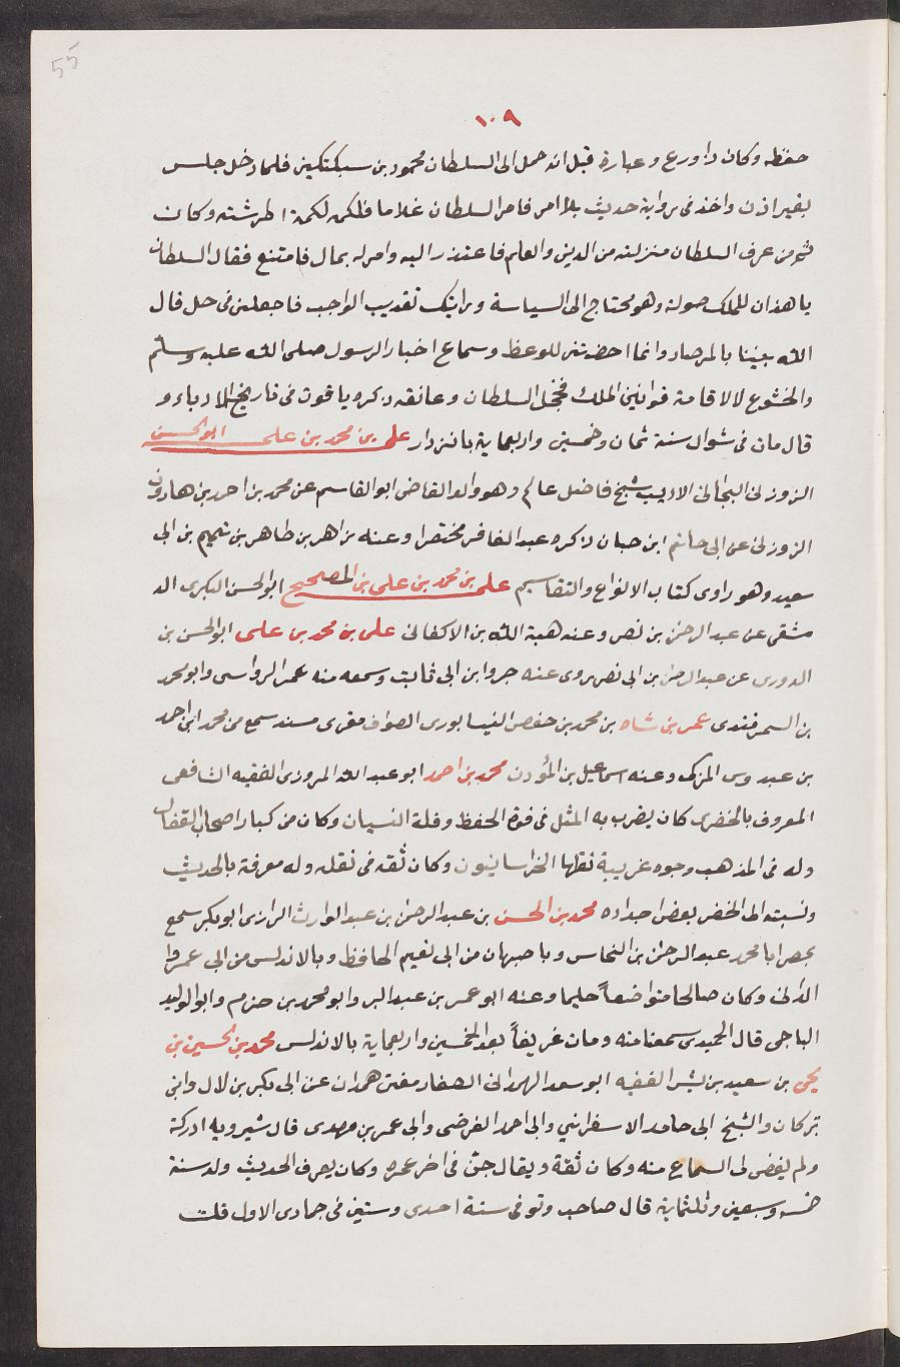 55
١٠٩
حفظه وكان ذا ورع وعبارة قيل انه حمل الى السلطان محمود بن سبكتكين فلما دخل جلس
بغير اذن واخذ فى رواية حديث بلا امر فامر السلطان غلاما فلكمه لكمة اطرشته وكان
ثم من عرف السلطان منزلته من الدين والعلم فاعتذر اليه وامر له بمال فامتنع فقال السلطان
يا هذا ان للملك صولة وهو محتاج الى السياسة ورايتك تعديت الواجب فاجعلنى فى حل قال
الله بيننا بالمرصاد وانما احضرتنى للوعظ وسماع اخبار الرسول صلى الله عليه وسلم
والخشوع لا لاقامة قوانين الملك فخجل السلطان وعانقه ذكره ياقوت فى تاريخ الادباء و
قال مات فى شوال سنة ثمان وخمسين واربعماية بانزدار على بن محمد بن على ابو الحسن
الزوزنى البحاثى الاديب شيخ فاضل عالم وهو والد القاضى ابو القاسم عن محمد بن احمد بن هارون
الزوزنى عن ابى حاتم ابن حبان ذكره عبد الغافر مختصرا وعنه زاهر بن طاهر بن تميم بن ابى
سعيد وهو راوى كتاب الانواع والتقاسيم على بن محمد بن على بن المصحح ابو الحسن البكرى الد
مشقى عن عبد الرحمن بن نصر وعنه هبة الله بن الاكفانى على بن محمد بن على ابو الحسن بن
الدورى عن عبد الرحمن بن ابى نصر روى عنه جروا بن ابى ثابت وسمعه منه عمر الرواسى وابو محمد
بن السمرقندى عمر بن شاه بن محمد بن حفص النيسابورى الصواف مقرى مسند سمع من محمد ابن احمد
بن عبدوس المزكى وعنه اسماعيل بن المؤذن محمد بن احمد ابو عبد الله المروزى الفقيه الشافعى
المعروف بالخضرى كان يضرب به المثل فى قوة الحفظ وقلة النسيان وكان من كبار اصحاب القفال
وله فى المذهب وجوه غريبة نقلها الخراسانيون وكان ثقه فى نقله وله معرفة بالحديث
ونسبته الى الخضر بعض اجداده محمد بن الحسن بن عبد الرحمن بن عبد الوارث الرازى ابو بكر سمع
بمصر ابا محمد عبد الرحمن بن النحاس وباصبهان من ابى نعيم الحافظ وبالاندلس من ابى عمروا
الدانى وكان صالحا متواضعاً حليما وعنه ابو عمر بن عبد البر وابو محمد بن حزم وابو الوليد
الباجى قال الحميدى سمعنا منه ومات غريقاً بعد الخمسين واربعماية بالاندلس محمد بن الحسين بن
يحى بن سعيد بن بشر الفقيه ابو سعد الهمدانى الصفار مفتى همدان عن ابى بكر بن لال وابن
تركان والشيخ ابى حامد الاسفراينى وابى احمد الفرضى وابى عمر بن مهدى قال شيرويه ادركته
ولم يقض لى السماع منه وكان ثقة ويقال جن فى اخر عمره وكان يعرف الحديث ولد سنة
خمسه وسبعين وثلثماية قال صاحب وتوفى سنة احدى وستين فى جمادى الاول قلت